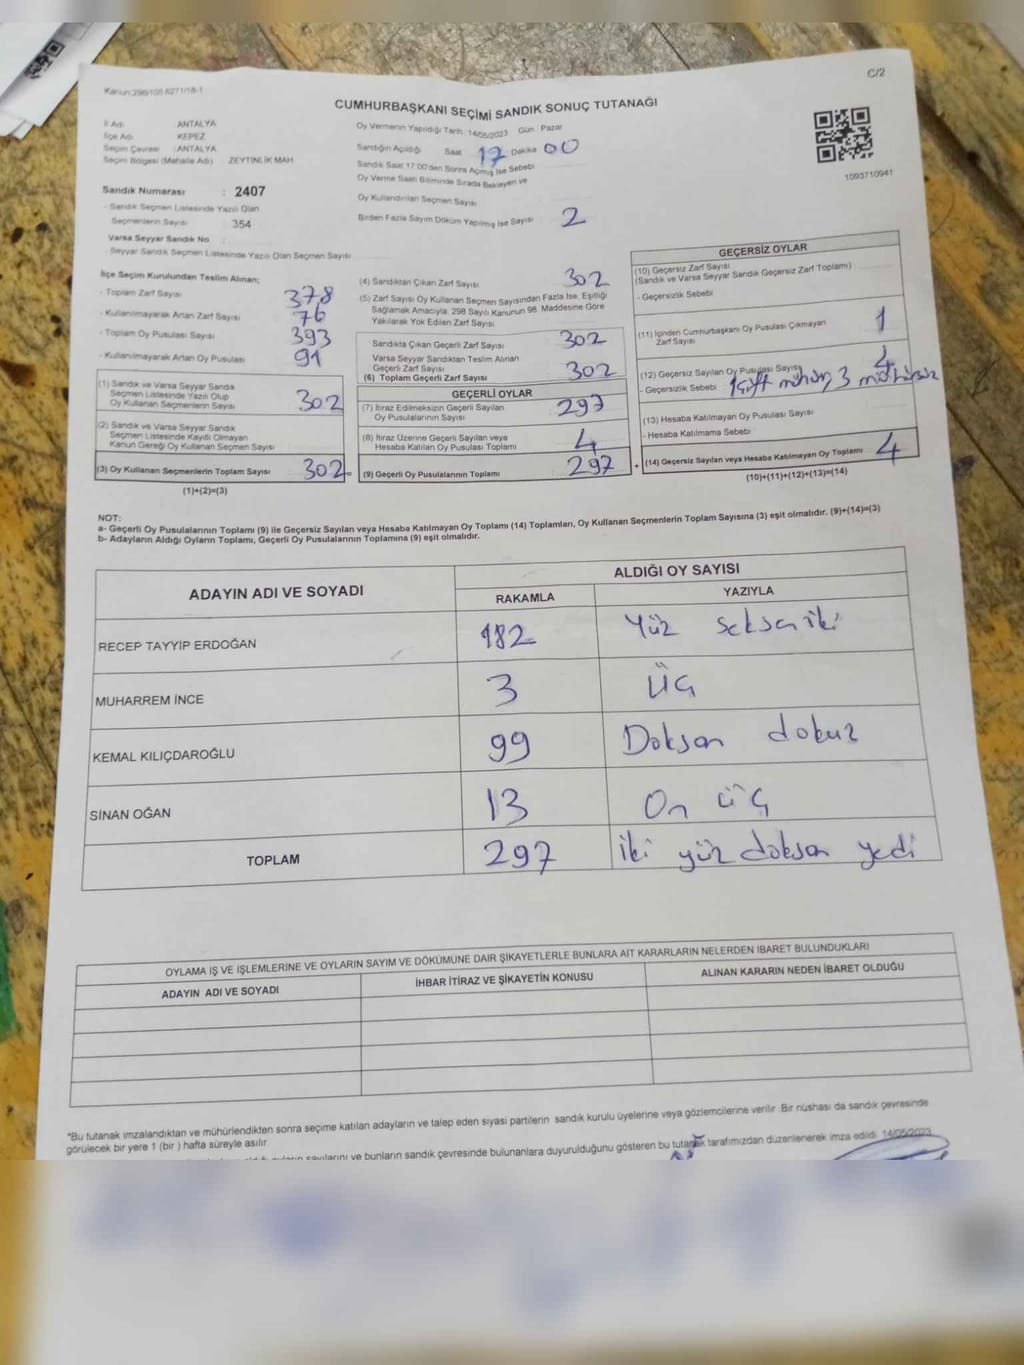 C/2
Kanun:298/105 6271/18-1
CUMHURBAŞKANI SEÇİMİ SANDIK SONUÇ TUTANAĞI
İl Adı ANTALYA
İlçe Adı KEPEZ
Seçim Çevresi : ANTALYA
Seçim Bölgesi (Mahalle Adı) ZEYTİNLİK MAH
Oy Vermenin Yapıldığı Tarih 14/05/2023 Gün Pazar
Sandığın Açıldığı Saat 17 Dakika 00
Sandık Saat 17:00'den Sonra Açılmış İse Sebebi
Oy Verme Saati Bitiminde Sırada Bekleyen ve
Oy Kullandırılan Seçmen Sayısı
Birden Fazla Sayım Döküm Yapılmış İse Sayısı 2
1093710941
Sandık Numarası : 2407
- Sandık Seçmen Listesinde Yazılı Olan
Seçmenlerin Sayısı 354
Varsa Seyyar Sandık No
- Seyyar Sandık Seçmen Listesinde Yazılı Olan Seçmen Sayısı
İlçe Seçim Kurulundan Teslim Alınan;
- Toplam Zarf Sayısı 378
- Kullanılmayarak Artan Zarf Sayısı 76
- Toplam Oy Pusulası Sayısı 393
- Kullanılmayarak Artan Oy Pusulası 91
(1) Sandık ve Varsa Seyyar Sandık
Seçmen Listesinde Yazılı Olup
Oy Kullanan Seçmenlerin Sayısı 302
(2) Sandık ve Varsa Seyyar Sandık
Seçmen Listesinde Kayıtlı Olmayan
Kanun Gereği Oy Kullanan Seçmen Sayısı
(3) Oy Kullanan Seçmenlerin Toplam Sayısı 302=
(1)+(2)=(3)
(4) Sandıktan Çıkan Zarf Sayısı 302
(5) Zarf Sayısı Oy Kullanan Seçmen Sayısından Fazla İse, Eşitliği
Sağlamak Amacıyla, 298 Sayılı Kanunun 98. Maddesine Göre
Yakılarak Yok Edilen Zarf Sayısı
Sandıkta Çıkan Geçerli Zarf Sayısı 302
Varsa Seyyar Sandıktan Teslim Alınan
Geçerli Zarf Sayısı
(6) Toplam Geçerli Zarf Sayısı 302
GEÇERLİ OYLAR
(7) İtiraz Edilmeksizin Geçerli Sayılan
Oy Pusulalarının Sayısı 297
(8) İtiraz Üzerine Geçerli Sayılan veya
Hesaba Katılan Oy Pusulası Toplamı 4
(9) Geçerli Oy Pusulalarının Toplamı 297 +
GEÇERSİZ OYLAR
(10) Geçersiz Zarf Sayısı
(Sandık ve Varsa Seyyar Sandık Geçersiz Zarf Toplamı)
- Geçersizlik Sebebi
(11) İçinden Cumhurbaşkanı Oy Pusulası Çıkmayan
Zarf Sayısı 1
(12) Geçersiz Sayılan Oy Pusulası Sayısı 4
- Geçersizlik Sebebi 1 çift mühür, 3 mühürsüz
(13) Hesaba Katılmayan Oy Pusulası Sayısı
- Hesaba Katılmama Sebebi
(14) Geçersiz Sayılan veya Hesaba Katılmayan Oy Toplamı 4
(10)+(11)+(12)+(13)=(14)
NOT:
a- Geçerli Oy Pusulalarının Toplamı (9) ile Geçersiz Sayılan veya Hesaba Katılmayan Oy Toplamı (14) Toplamları, Oy Kullanan Seçmenlerin Toplam Sayısına (3) eşit olmalıdır. (9)+(14)=(3)
b- Adayların Aldığı Oyların Toplamı, Geçerli Oy Pusulalarının Toplamına (9) eşit olmalıdır.
ADAYIN ADI VE SOYADI ALDIĞI OY SAYISI
RAKAMLA YAZIYLA
RECEP TAYYİP ERDOĞAN 182 Yüz seksen iki
MUHARREM İNCE 3 Üç
KEMAL KILIÇDAROĞLU 99 Doksan dokuz
SİNAN OĞAN 13 On üç
TOPLAM 297 iki yüz doksan yedi
OYLAMA İŞ VE İŞLEMLERİNE VE OYLARIN SAYIM VE DÖKÜMÜNE DAİR ŞİKAYETLERLE BUNLARA AİT KARARLARIN NELERDEN İBARET BULUNDUKLARI
ADAYIN ADI VE SOYADI İHBAR İTİRAZ VE ŞİKAYETİN KONUSU ALINAN KARARIN NEDEN İBARET OLDUĞU
*Bu tutanak imzalandıktan ve mühürlendikten sonra seçime katılan adayların ve talep eden siyasi partilerin sandık kurulu üyelerine veya gözlemcilerine verilir. Bir nüshası da sandık çevresinde
görülecek bir yere 1 (bir ) hafta süreyle asılır.
sayılarını ve bunların sandık çevresinde bulunanlara duyurulduğunu gösteren bu tutanak tarafımızdan düzenlenerek imza edildi. 14/05/2023